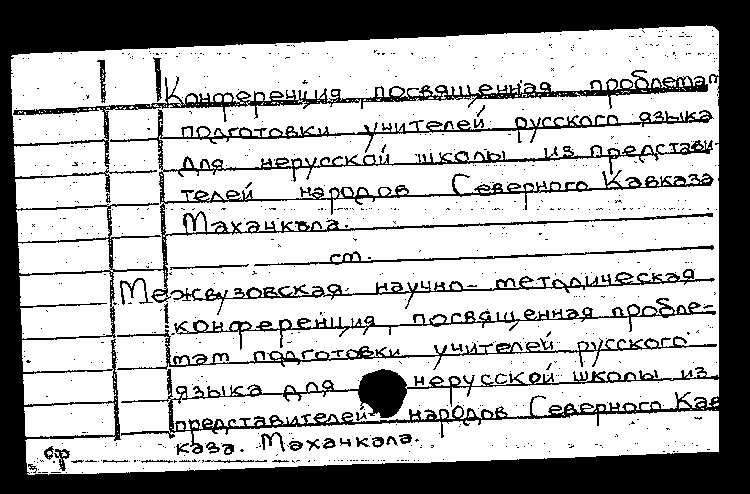 Конференция, посвященная проблемам
подготовки учителей русского языка
для нерусской школы из представи-
телей народов Северного Кавказа
Махачкала.
ст.
Межвузовская научно-методическая
конференция, посвященная пробле-
мам подготовки учителей русского
языка для нерусской школы из
представителей народов Северного Кав
каза. Махачкала.